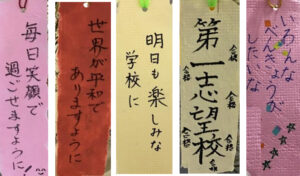 毎日笑顔で
過ごせますように
世界が平和で
ありますように
明日も楽しみな
学校に
第一志望校
合格
合格
合格
合格
合格
合格
いろんな
べんきょうが
したいな